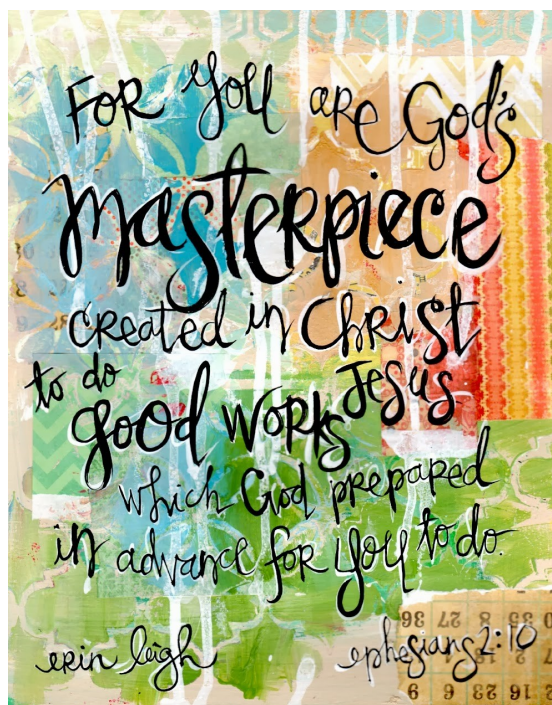 FOR you are God's
masterpiece
created in Christ
to do Jesus
good works
which God prepared
in advance for you to do.
erin leigh ephesians 2:10